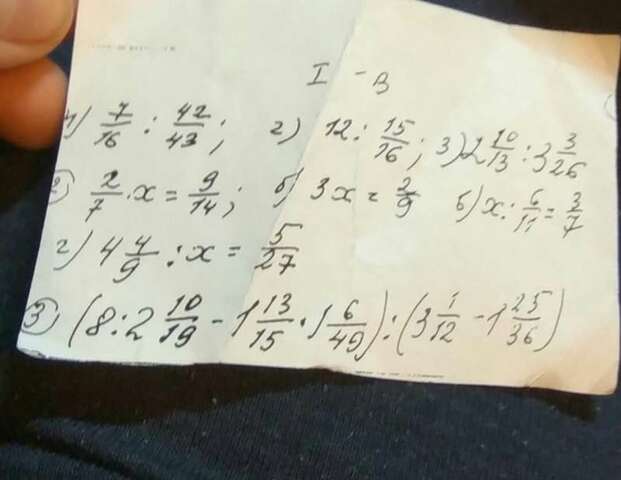 I - В
1) 7/16 : 42/43; 2) 12 : 15/16; 3) 2 10/13 : 3 3/26
2) 2/7 · x = 9/14; б) 3x = 2/9 б) x : 6/11 = 3/7
г) 4 4/9 : x = 5/27
3) (8 : 2 10/19 - 1 13/15 · 1 6/49) : (3 1/12 - 1 25/36)